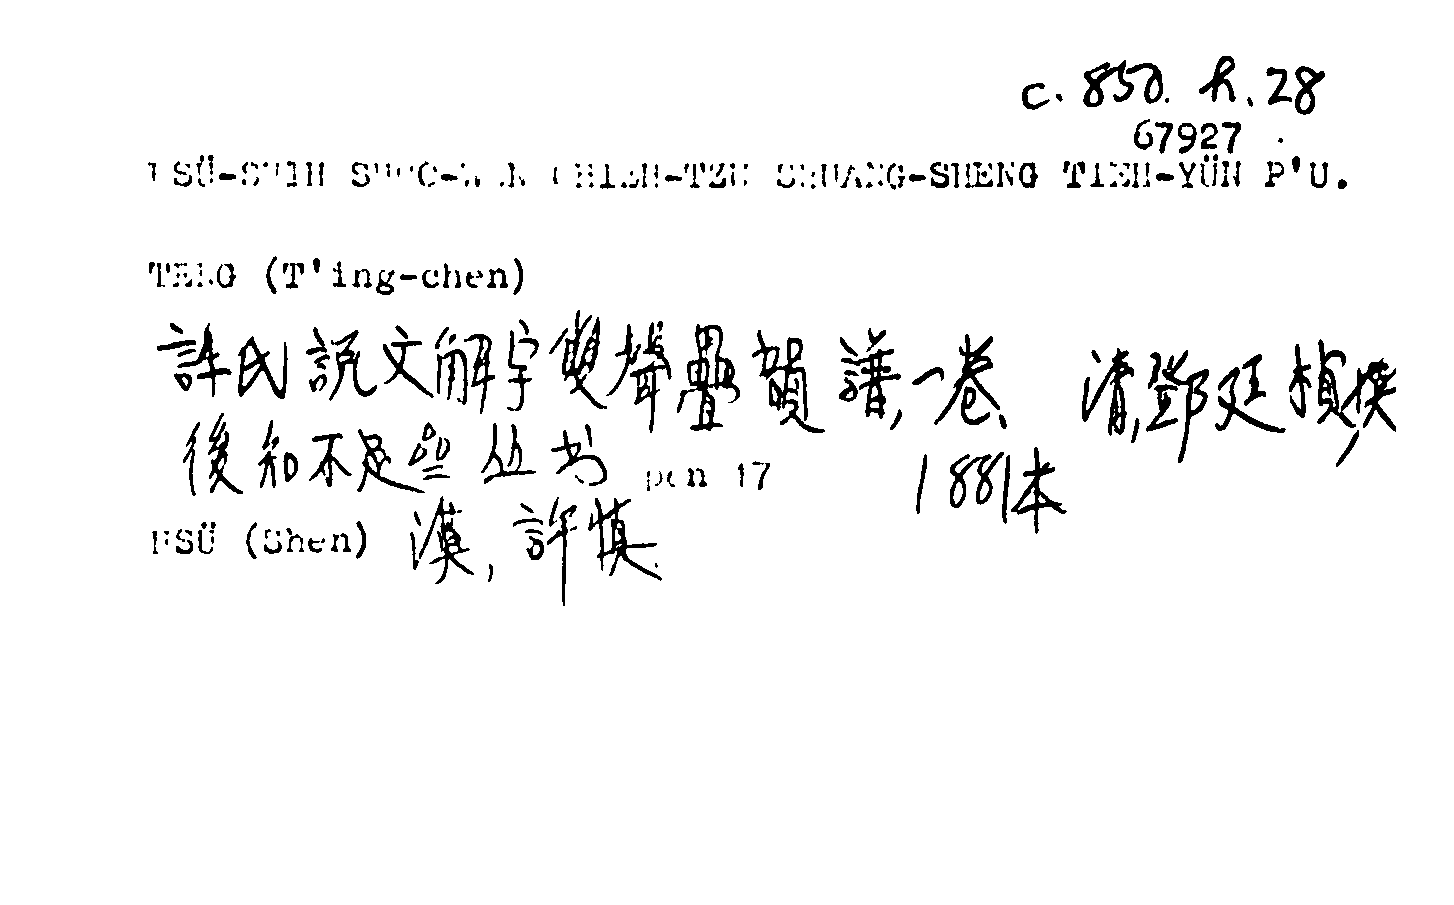 c. 850. h. 28
67927
HSÜ-SHIH SHUO-WEN CHIEH-TZU SHUANG-SHENG TIEH-YÜN P'U.
TENG (T'ing-chen)
許氏説文解字雙聲疊韻譜,一卷、 清,鄧廷楨撰,
後知不足齋丛书 pen 17 1881本
HSÜ (Shen) 漢, 許慎.